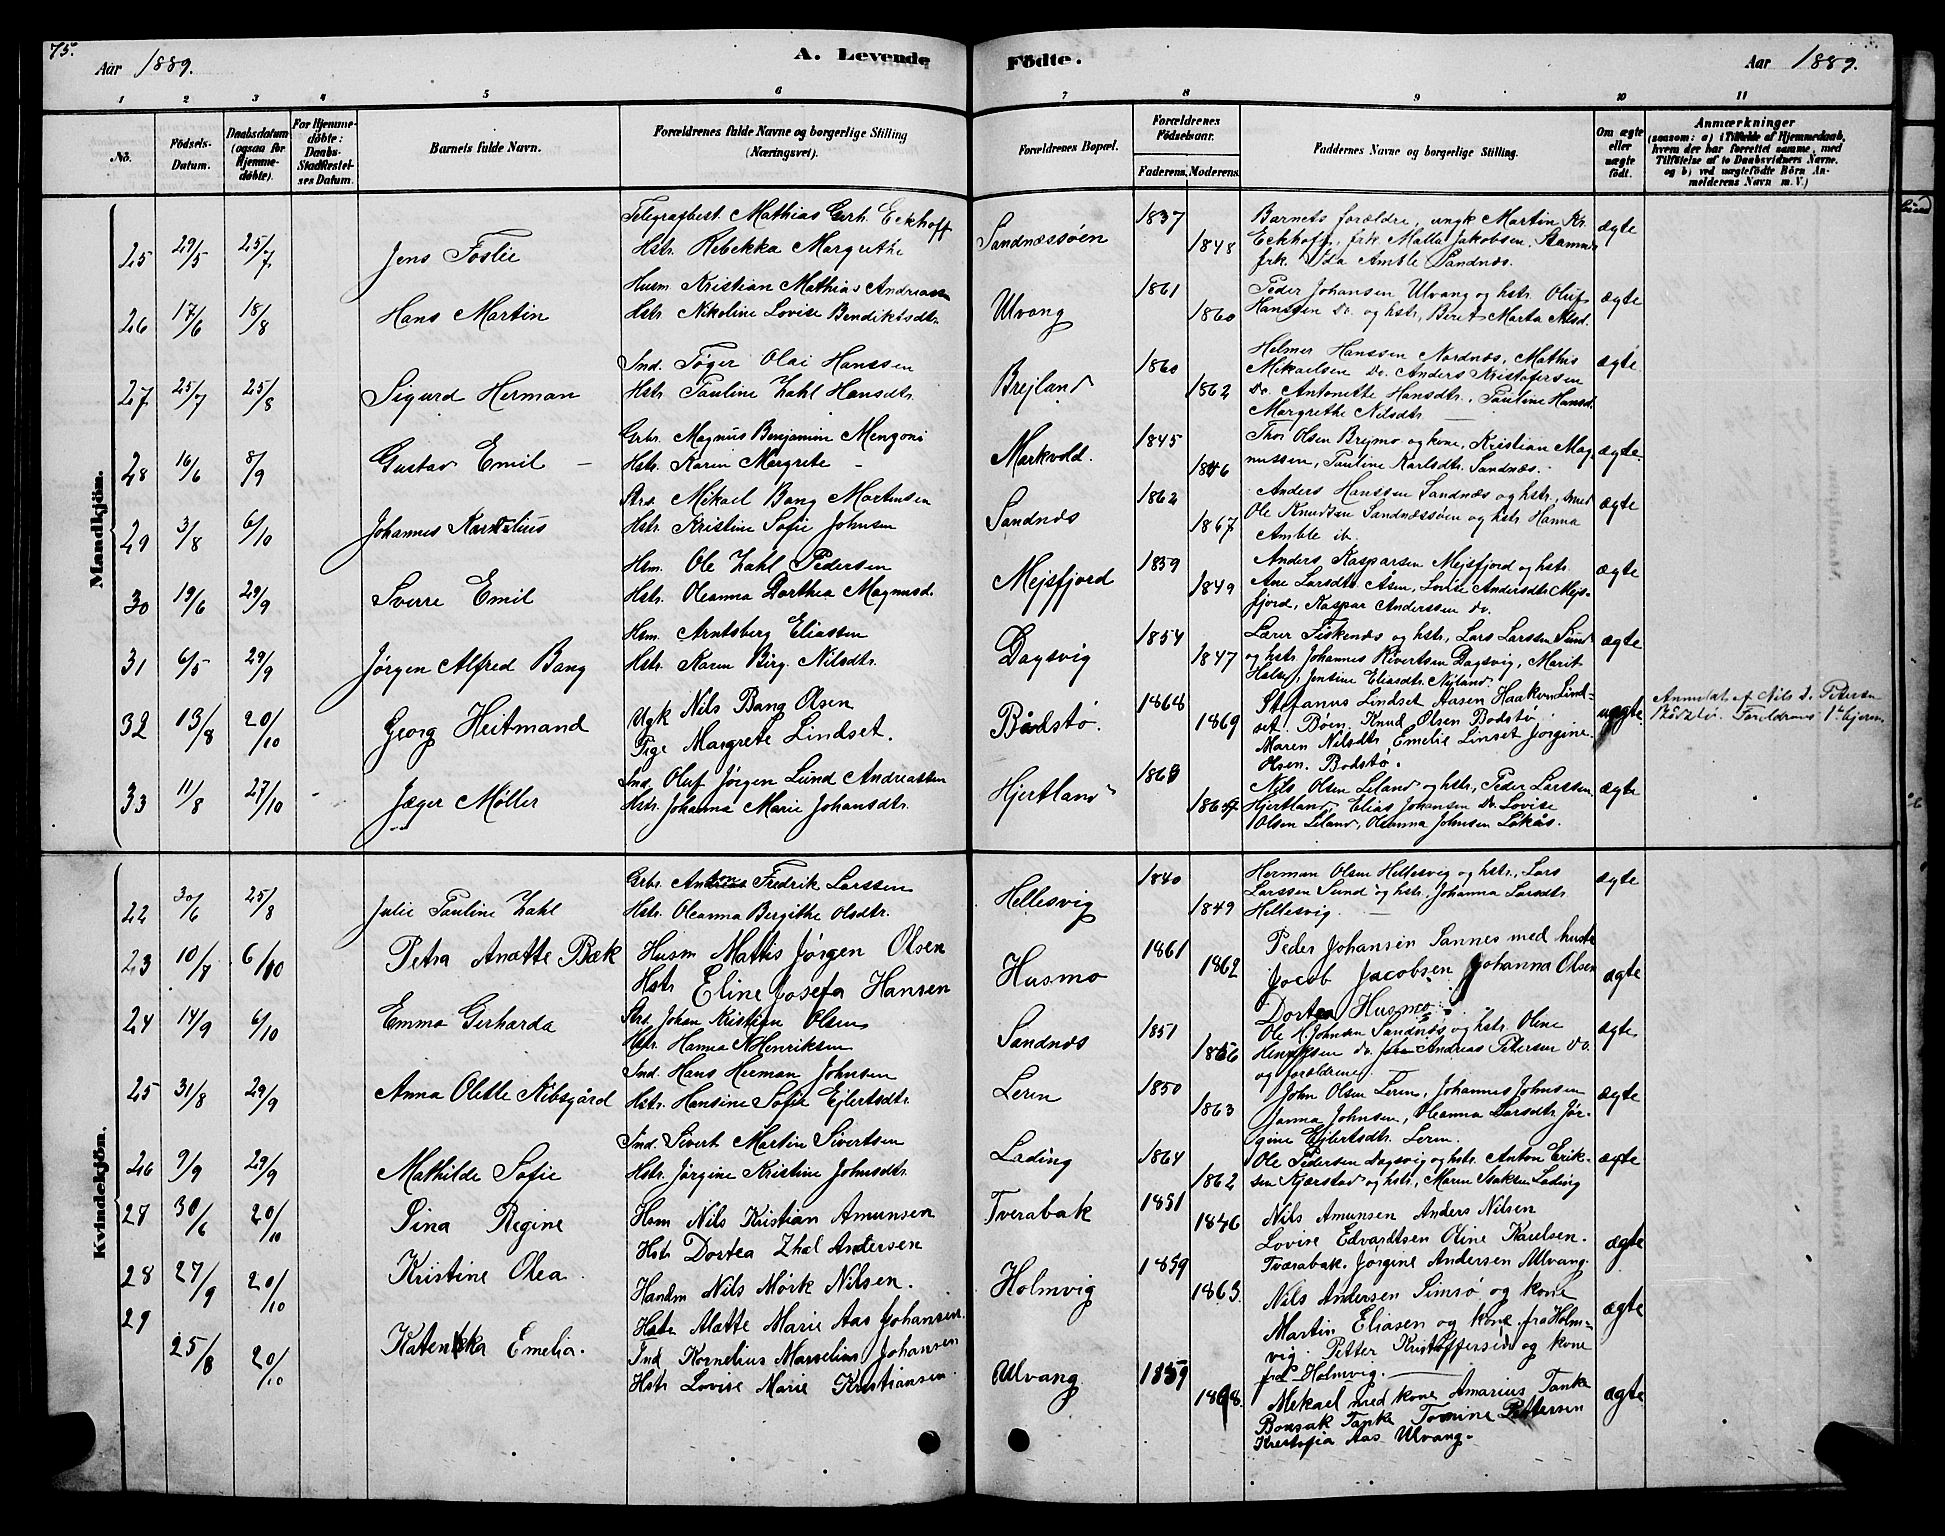 75.
Aar 1889.
A. Levende Födte.
Aar 1889.
1 2 3 4 5 6 7 8 9 10 11
No.
Födsels-Datum.
Daabsdatum (ogsaa for Hjemme-døbte).
For Hjemme-døbte: Daabs-Stadfæstel-ses Datum.
Barnets fulde Navn.
Forældrenes fulde Navne og borgerlige Stilling (Næringsvei).
Forældrenes Bopæl.
Forældrenes Födselsaar.
Faderens. Moderens.
Faddernes Navne og borgerlige Stilling.
Om ægte eller uægte födt.
Anmærkninger
(saasom: a) i Tilfælde af Hjemmedaab, hvem der har forrettet samme, med Tilföielse af to Daabsvidners Navne. og b) ved uægtefödte Börn An-melderens Navn m. V.)
Mandkjön.
25 29/5 25/7 Jens Foslie
Telegrafbest. Mathias Gerh. Eckhoff
Hstr. Rebekka Margrethe
Sandnæssöen 1837 1848
Barnets forældre, ungk Martin Kr.
Eckhoff, frk. Malla Jakobsen,
frk. Ida Amble Sandnæs.
ægte
26 17/6 18/8 Hans Martin
Husm Kristian Mathias Andreassen
Hstr. Nikoline Lovise Bendiktsdtr.
Ulvang 1861 1860
Peder Johansen Ulvang og hstr. Oluf
Hanssen Do. og hstr, Beret Marta Nilsd.
ægte
27 25/7 25/8 Sigurd Herman
Ind. Töger Olai Hanssen
Hstr. Pauline Zahl Hansdtr.
Brejland 1860 1862
Helmer Hanssen Nordnæs, Mathis
Mikaelsen Do. Anders Kristofersen
Do. Antonette Hansdtr, Pauline Hansd.
Margrethe Nilsdtr
ægte
28 16/6 8/9 Gustav Emil
Grbr. Magnus Benjamin Mengoni
Hstr. Karen Margrete
Markvold. 1845 1846
Thor Olsen Brejmo og kone, Kristian Mag-
nussen, Pauline Karlsdtr. Sandnæs.
ægte
29 3/8 6/10 Johannes
Strs. Mikael Bang Mortensen
Hstr. Kristine Sofie Johnsen
Sandnæs 1862 1867
Anders Hanssen Sandnæs og hstr.,
Ole Knudsen Sandnæssöen og hstr Hanna
Amble ib.
ægte
30 19/6 29/9 Sverre Emil
Hsm. Ole Zahl Pedersen
Hstr. Oleanna Dorthea Magnusd.
Mejsfjord 1859 1849
Anders Kasparsen Mejsfjord og hstr.
Ane Larsdtr Åsen, Lovise Andersdtr Mejs-
fjord, Kaspar Anderssen do.
ægte
31 6/5 29/9 Jörgen Alfred Bang
Hsm. Arntsberg Eliassen
Hstr. Karen Birg. Nilsdtr.
Dagsvig 1854 1847
Lærer Fiskenæs og hstr, Lars Larssen Sund
og hstr. Johannes Sivertsen Dagsvig, Marit
Jensine Eliasdtr. Nyland.
ægte
32 13/8 20/10 Georg Heitmand
Ugk Nils Bang Olsen
Pige Margrete Lindset.
Bödstö. 1868 1869
Stefanus Lindset Aasen Haakon Lind-
set. Böen, Knud Olsen Bodstö
Maren Nilsdtr Emelie Linset Jörgine
Olsen. Bodstö.
uægte
Anmeldt af Nils D. Petersen
Forældrenes 1te
33 11/8 27/10 Jæger Möller
Ind. Oluf Jörgen Lund Andreassen
Hstr. Johanna Marie Johansdtr.
Hjertland 1863
Nils Olsen Leland og hstr, Peder Larssen
Hjertland, Elias Johansen Do. Lovise
Olsen Leland, Oleanna Johnsen Lökås.
ægte
Kvindekjön.
22 30/6 25/8 Julie Pauline Zahl
Grbr. Anton Fredrik Larssen
Hstr. Oleanna Bergithe Olsdtr.
Hellesvig 1840 1849
Herman Olsen Hellesvig og hstr., Lars
Larssen Sund og hstr. Johanna Larsdtr
Hellesvig.
ægte
23 10/7 6/10 Petra Anætte Bæk
Husm Mattis Jörgen Olsen
Hstr Eline Josefa Hansen
Husmo 1861 1862
Peder Johansen Sannes med hustr
Jocob Jacobsen Johanna Olsen
Dortea Husmo.
ægte
24 14/9 6/10 Emma Gerharda
Strs. Johan Kristian Olsen
Hstr. Hanna N Henriksen
Sandnæs 1851
Ole Johnsen Sandnæs og hstr. Oline
Henriksen do. Andreas Petersen do.
og forældrene.
ægte
25 31/8 29/9 Anna Olette Nibsgård
Ind. Hans Herman Johnsen
Hstr. Hansine Sofie Ejlertsdtr.
Leren 1850 1863
John Olsen Leren, Johannes Johnsen
Janna Johnsen, Oleanna Larsdtr Jör-
gine Ejlertsdtr. Leren.
ægte
26 9/9 29/9 Mathilde Sofie
Ind. Sivert Martin Sivertsen
Hstr. Jörgine Kristine Johnsdtr.
Lading 1864 1862
Ole Pedersen Dagsvig og hstr. Anton Erik-
sen Kjærstad og hstr, Maren Isaksen Lading
ægte
27 30/6 20/10 Sina Regine
Hsm Nils Kristian Amunsen
Hstr Dortea Zhal Andersen
Tverabak 1851 1846
Nils Amunsen Anders Nilsen
Lovise Edvardtsen Oline Karelsen.
Tværabak. Jörgine Andersen Ulvang.
ægte
28 27/9 20/10 Kristine Olea.
Handm Nils Mörk Nilsen.
Hstr Alætte Marie Aas Johansen.
Holmvig 1859 1863.
Nils Andersen Simsö og kone
Martin Eliasen og kone fra Holm-
vig. Petter Kristoffersen og kone
fra Holmvig.
ægte
29 25/8 20/10 Katenka Emelia.
Ind Kornelius Marselius Johansen
Hstr Lovise Marie Kristiansen.
Ulvang 1859
Mekael med kone Amarius Tanke
Bonsak Tanke Tomine Pettersen
Krestofia Aas Ulvang.
ægte